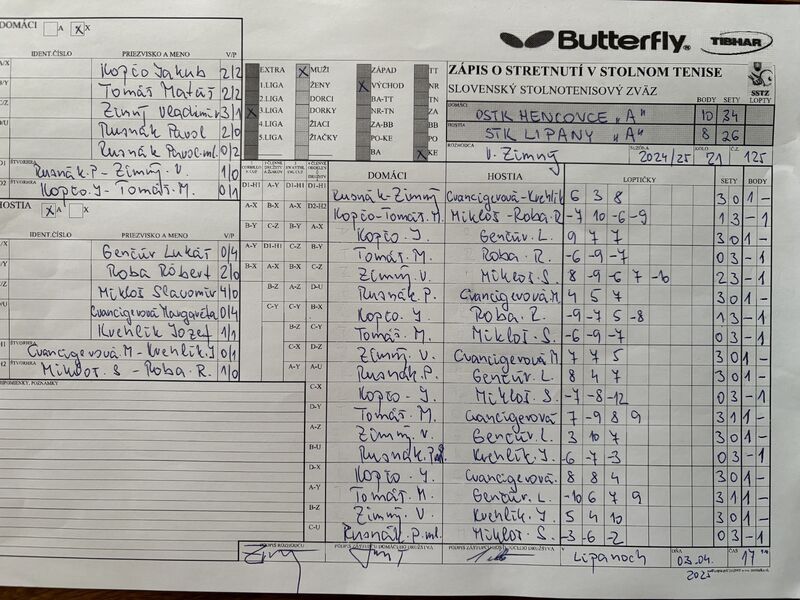 DOMÁCI A X X
IDENT.ČÍSLO PRIEZVISKO A MENO V/P
A/X Kopčo Jakub 2/2
B/Y Tomáš Matúš 2/2
C/Z Zimný Vladimír 3/1
Rusnák Pavol 2/0
Rusnák Pavol ml. 0/2
D1 ŠTVORHRA Rusnák P. - Zimný V. 1/0
D2 ŠTVORHRA Kopčo J. - Tomáš M. 0/1
HOSTIA X A X
IDENT.ČÍSLO PRIEZVISKO A MENO V/P
Genčúr Lukáš 0/4
Roba Róbert 2/0
Mikloš Slavomír 4/0
Cvancigerová Margaréta 0/4
Krehlík Jozef 1/1
H1 ŠTVORHRA Cvancigerová M - Krehlík J 0/1
H2 Mikloš S - Roba R. 1/0
PRIPOMIENKY, POZNÁMKY
Butterfly
TIBHAR
EXTRA X MUŽI ZÁPAD TT
1.LIGA ŽENY X VÝCHOD NR
2.LIGA DORCI BA-TT TN
X 3.LIGA DORKY NR-TN ZA
4.LIGA ŽIACI ZA-BB BB
5.LIGA ŽIAČKY PO-KE PO
BA X KE
ZÁPIS O STRETNUTÍ V STOLNOM TENISE
SLOVENSKÝ STOLNOTENISOVÝ ZVÄZ
SSTZ
BODY SETY LOPTY
DOMÁCI OSTK HENCOVCE "A" 10 34
HOSTIA STK LIPANY "A" 8 26
ROZHODCA V. Zimný SEZÓNA 2024/25 KOLO 21 Č.Z. 125
DOMÁCI HOSTIA LOPTIČKY SETY BODY
D1-H1 A-Y D1-H1 D1-H1 Rusnák-Zimný Cvancigerová-Krehlík 6 3 8 3 0 1 -
A-X B-X A-X D2-H2 Kopčo-Tomáš M. Mikloš-Roba R. -7 10 -6 -9 1 3 - 1
B-Y C-Z B-Y A-X Kopčo J. Genčúr L. 9 7 7 3 0 1 -
A-Y D1-H1 C-Z B-Y Tomáš M. Roba R. -6 -9 -7 0 3 - 1
B-X A-X B-X C-Z Zimný V. Mikloš S. 8 -9 -6 7 -10 2 3 - 1
B-Z A-Z D-U Rusnák P. Cvancigerová M 4 5 7 3 0 1 -
C-Y C-Y B-X Kopčo J. Roba R. -9 -7 5 -8 1 3 - 1
B-Z C-Y Tomáš M. Mikloš S. -6 -9 -7 0 3 - 1
C-X D-Z Zimný V. Cvancigerová M 7 7 5 3 0 1 -
A-Y A-U Rusnák P. Genčúr L. 8 4 7 3 0 1 -
C-X Kopčo J. Mikloš S. -7 -8 -12 0 3 - 1
D-Y Tomáš M. Cvancigerová 7 -9 8 9 3 1 1 -
A-Z Zimný V. Genčúr L. 3 10 7 3 0 1 -
B-U Rusnák P. ml. Krehlík J. -6 -7 -3 0 3 - 1
D-X Kopčo J. Cvancigerová. 8 8 4 3 0 1 -
A-Y Tomáš M. Genčúr L. -10 6 7 9 3 1 1 -
B-Z Zimný V. Krehlík J. 5 4 10 3 0 1 -
C-U Rusnák P. ml. Mikloš S. -3 -6 -2 0 3 - 1
PODPIS ROZHODCU PODPIS ZÁSTUPCU DOMÁCEHO DRUŽSTVA V Lipanoch DŇA 03.04. 2025 ČAS 17